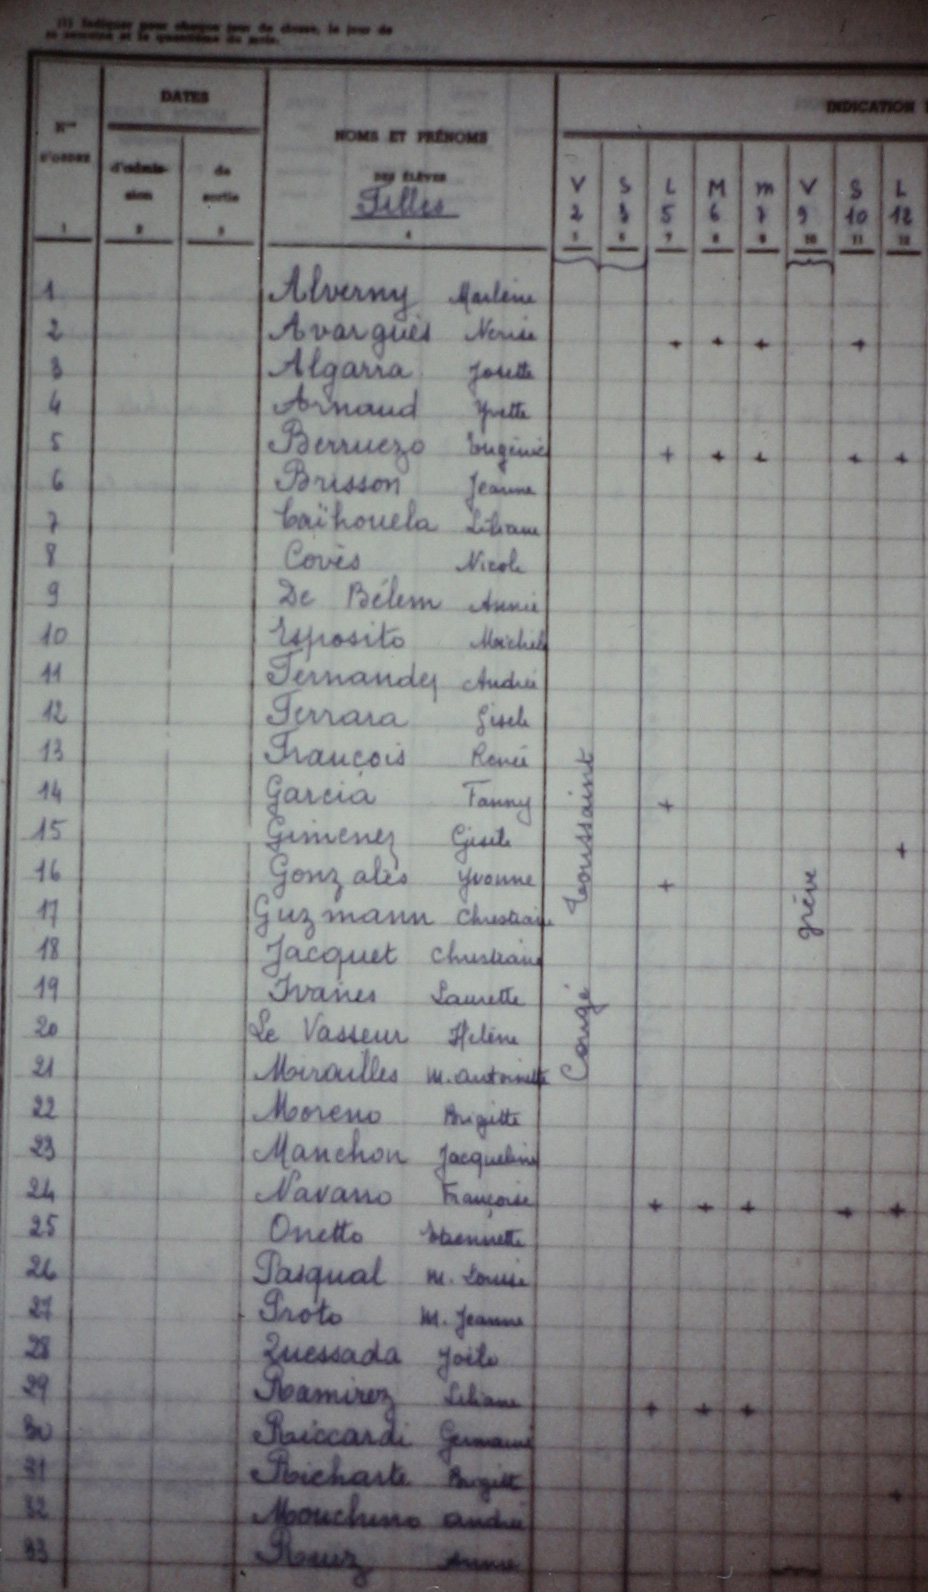 (1) Indiquer pour chaque jour de classe, le jour de
la semaine et le quantième du mois.
Nos D'ORDRE
DATES
d'admission
de sortie
NOMS ET PRÉNOMS
DES ÉLÈVES
Filles
INDICATION
V S L M m V S L
2 3 5 6 7 9 10 12
1 2 3 4 5 6 7 8 9 10 11 12
1 Alverny Marlène
2 Avarguès Nerise + + + +
3 Algarra Josette
4 Arnaud Yvette
5 Berruezo Eugénie + + + + +
6 Brisson Jeanne
7 Caïhouela Liliane
8 Covès Nicole
9 De Bélem Annie
10 Esposito Michèle
11 Fernandez Andrée
12 Ferrara Gisèle
13 François Renée
14 Garcia Fanny +
15 Gimenez Gisèle +
16 Gonzalès Yvonne +
17 Guzmann Christiane
18 Jacquet Christiane
19 Ivanes Laurette
20 Le Vasseur Hélène
21 Mirailles M. Antoinette
22 Moreno Brigitte
23 Manchon Jacqueline
24 Navarro Françoise + + + + +
25 Onetto Etiennette
26 Pasqual M. Louise
27 Proto M. Jeanne
28 Quessada Joële
29 Ramirez Liliane + + +
30 Riccardi Germaine
31 Richarte Brigitte
32 Mouchino Andrée +
33 Ruiz Annie
Congé Toussaint
grève